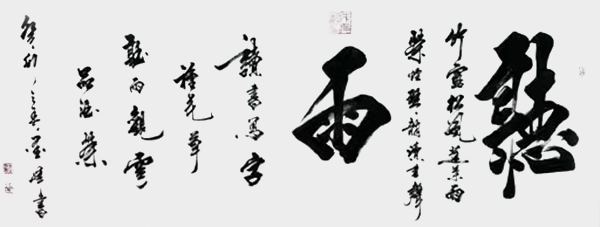 聽
竹露松風蕉葉雨
茶烟琴韻讀書聲
雨
讀書寫字
種花草
聽雨觀雲
品酒茶
癸卯之春墨書